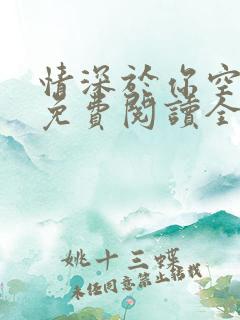 情深於你空
免費閱讀全
姚十三蝶
未經同意禁止轉載